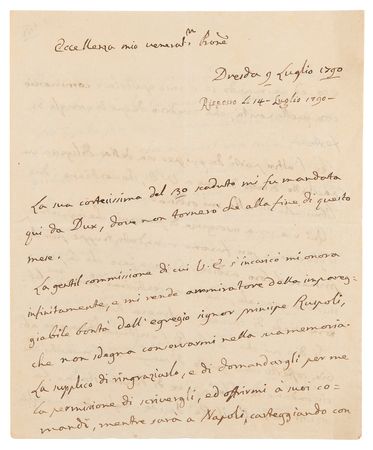 Eccellenza mio venerat.<sup>mo</sup> Prone
Dresda 9 Luglio 1790
Risposto li 14 Luglio 1790
La sua cortesissima del 30 scaduto mi fu mandata
qui da Dux, dove non tornerò che alla fine di questo
mese.
La gentil commissione di cui V. E. s'incaricò mi onora
infinitamente, e mi rende ammiratore della impareg-
giabile bontà dell'egregio signor principe Ruspoli,
che non sdegna conservarmi nella sua memoria.
La supplico di ringraziarlo, e di domandargli per me
la permissione di scrivergli, ed offrirmi à suoi co-
mandi, mentre sarà a Napoli, carteggiando con